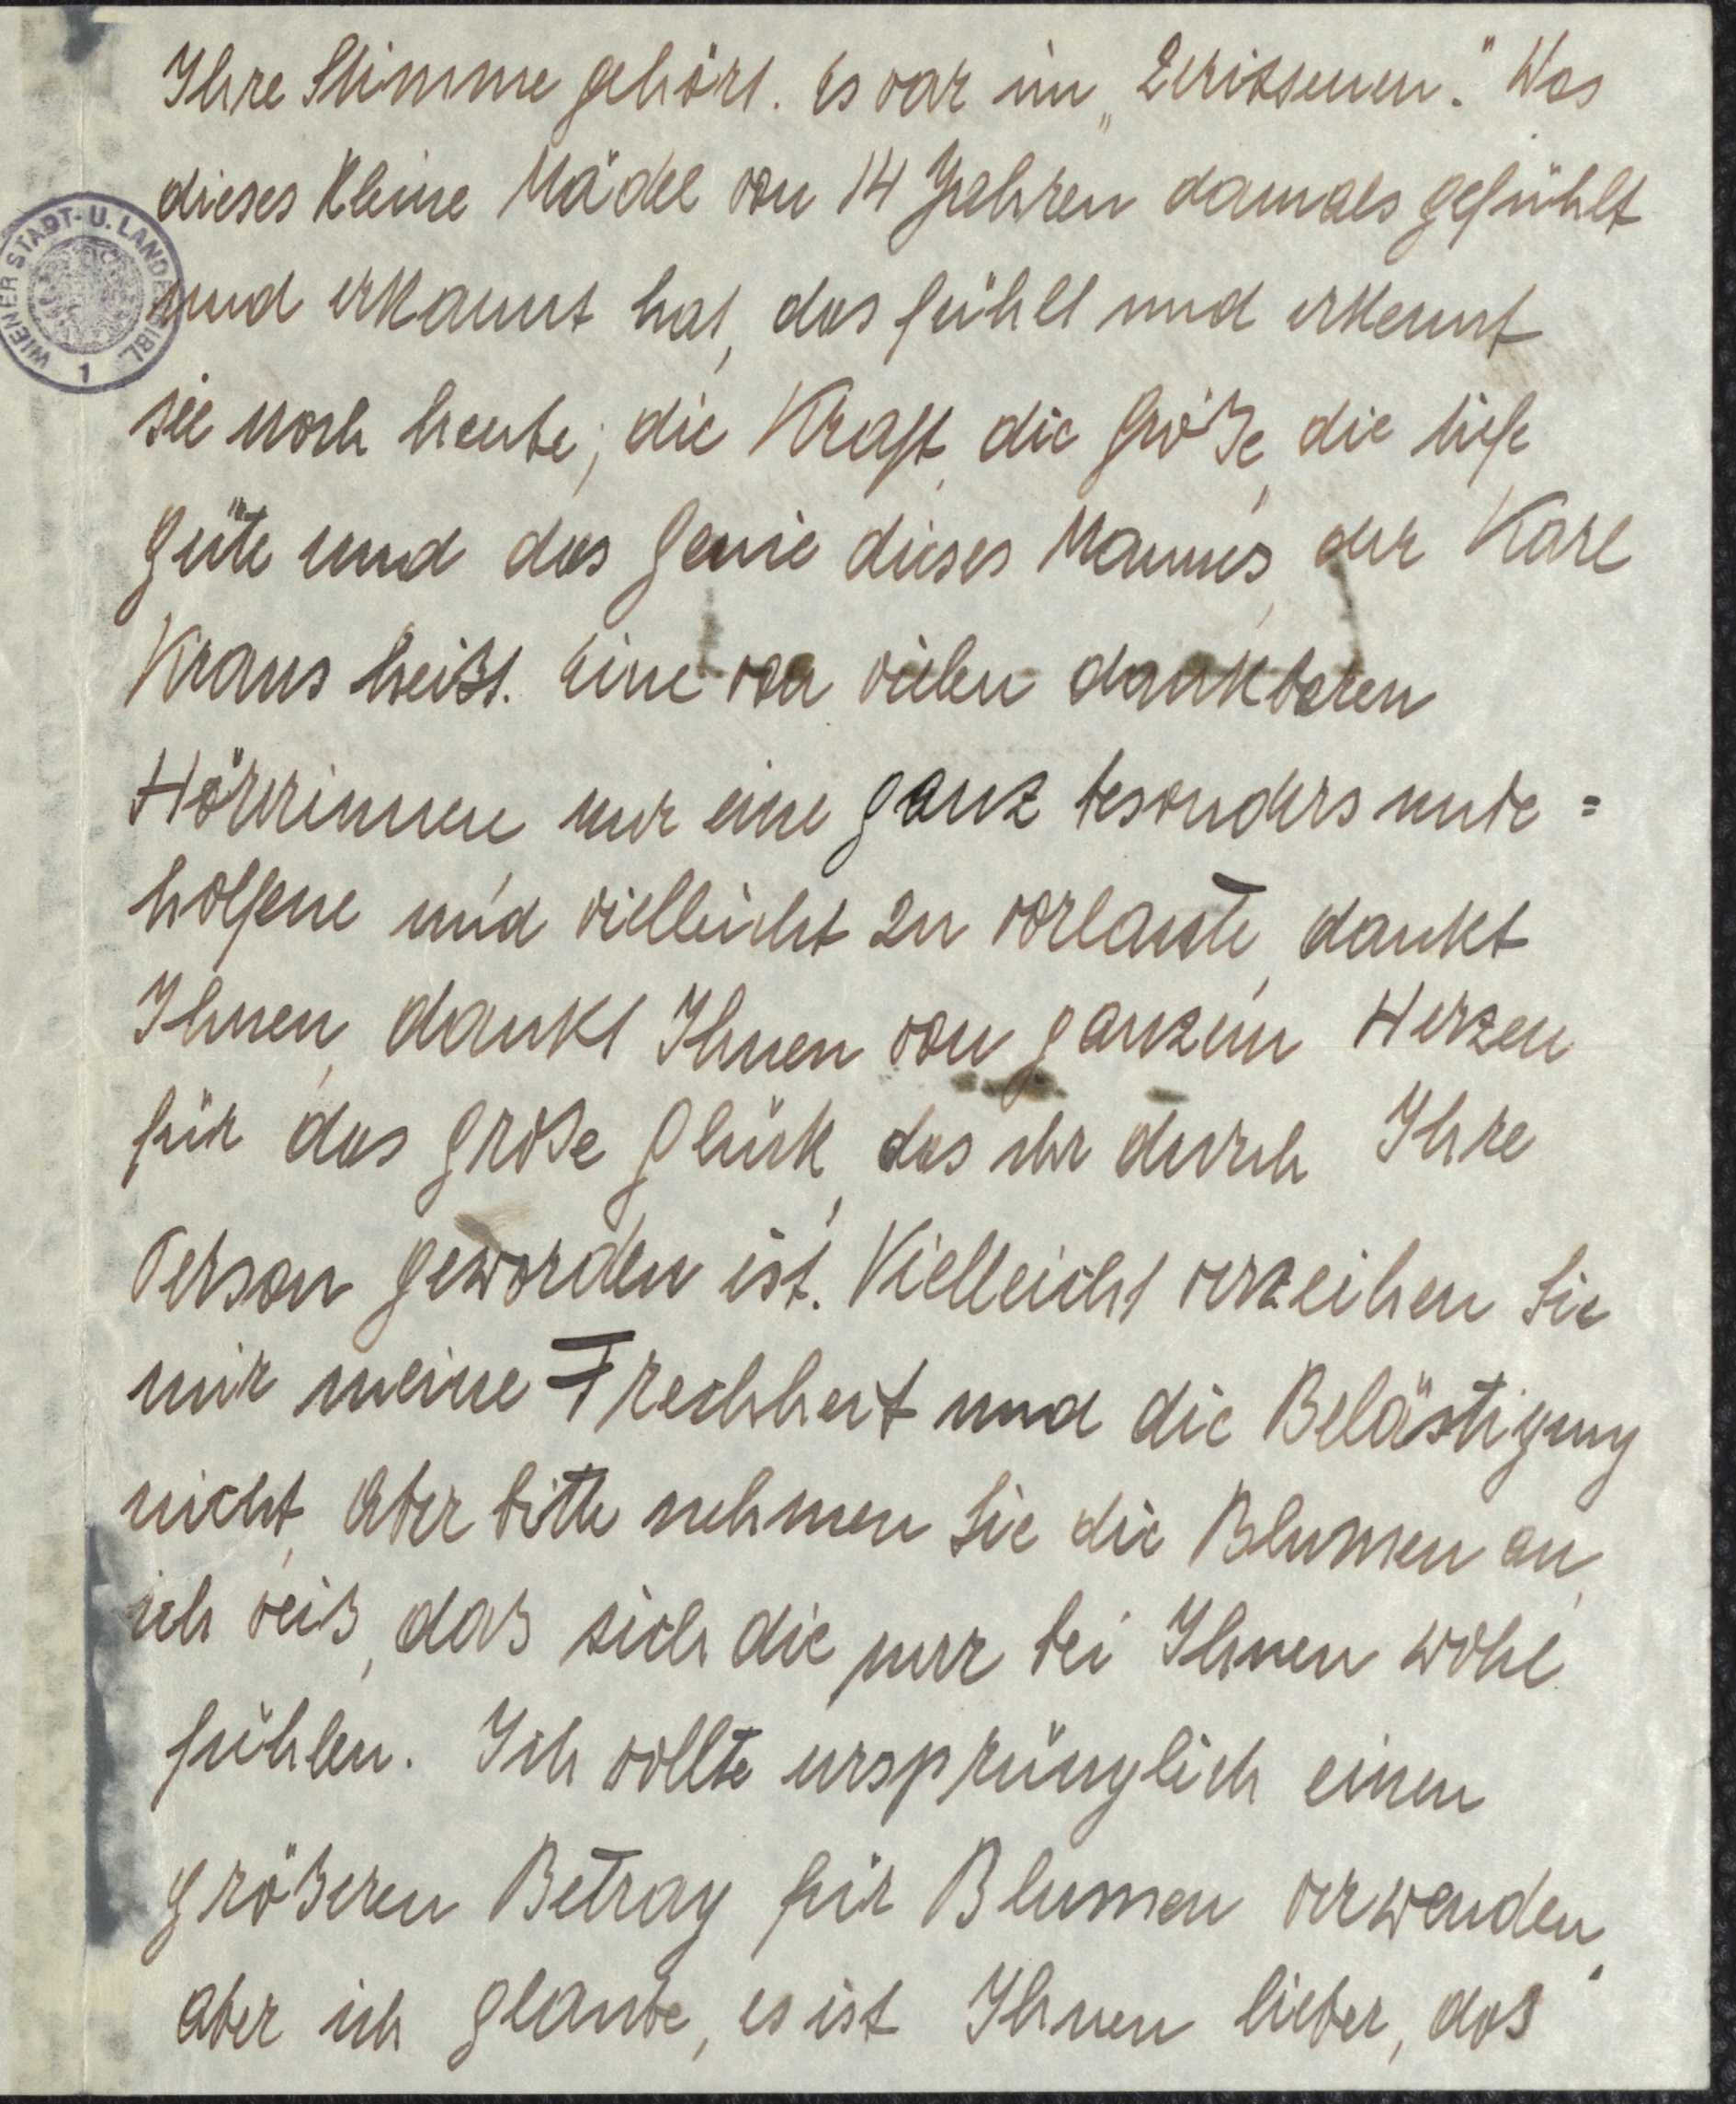 Ihre Stimme gehört. Es war im „Zerrissenen." Was
dieses kleine Mädel von 14 Jahren damals gefühlt
und erkannt hat, das fühlt und erkennt
sie noch heute; die Kraft, die Größe, die tiefe
Güte und das Genie dieses Mannes, der Karl
Kraus heißt. Eine von vielen dankbaren
Hörerinnen, nur eine ganz besonders unbe=
holfene und vielleicht zu vorlaute, dankt
Ihnen, dankt Ihnen von ganzem Herzen
für das große Glück, das ihr durch Ihre
Person geworden ist. Vielleicht verzeihen Sie
mir meine Frechheit und die Belästigung
nicht, aber bitte nehmen Sie die Blumen an,
ich weiß, daß sich die nur bei Ihnen wohl
fühlen. Ich wollte ursprünglich einen
größeren Betrag für Blumen verwenden,
aber ich glaube, es ist Ihnen lieber, das
WIENER STADT- U. LANDESBIBL.
1